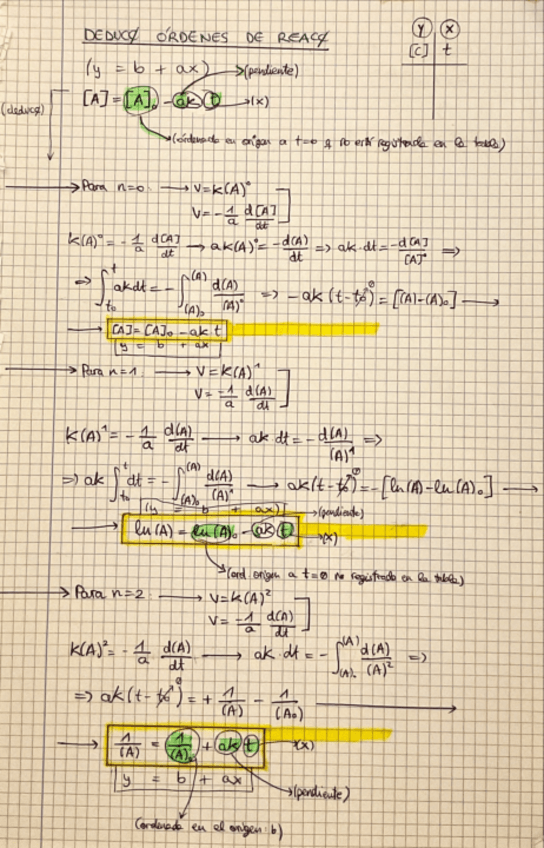 DEDUCÇ ÓRDENES DE REACÇ
y x
[C] t
(y = b + ax) → (pendiente)
(deducç) [A] = [A]₀ - ak t → (x)
(ordenada en origen a t=0 y no está registrada en la tabla)
→ Para n=0 → V = K(A)⁰
V = - 1/a d[A]/dt
K(A)⁰ = - 1/a d[A]/dt → ak(A)⁰ = -d(A)/dt ⇒ ak·dt = -d[A]/[A]⁰ ⇒
⇒ ∫_t₀^t akdt = - ∫_(A)₀^(A) d(A)/(A)⁰ ⇒ -ak (t - t₀⁰) = [(A)-(A)₀] →
→ [A] = [A]₀ - ak t
y = b + ax
→ Para n=1. → V = K(A)¹
V = -1/a d(A)/dt
K(A)¹ = - 1/a d(A)/dt → ak dt = - d(A)/(A)¹ ⇒
⇒ ak ∫_t₀^t dt = - ∫_(A)₀^(A) d(A)/(A)¹ → ak(t - t₀⁰) = -[ln(A) - ln(A)₀] →
(y = b + ax) → (pendiente)
→ ln(A) = ln(A)₀ - ak t → (x)
(ord. origen a t=0 no registrado en la tabla)
→ Para n=2 → V = K(A)²
V = -1/a d(A)/dt
K(A)² = - 1/a d(A)/dt → ak·dt = - ∫_(A)₀^(A) d(A)/(A)² ⇒
⇒ ak(t - t₀⁰) = + 1/(A) - 1/(A₀) →
→ 1/(A) = 1/(A)₀ + ak t → (x)
y = b + ax
→ (pendiente)
(ordenada en el origen: b)